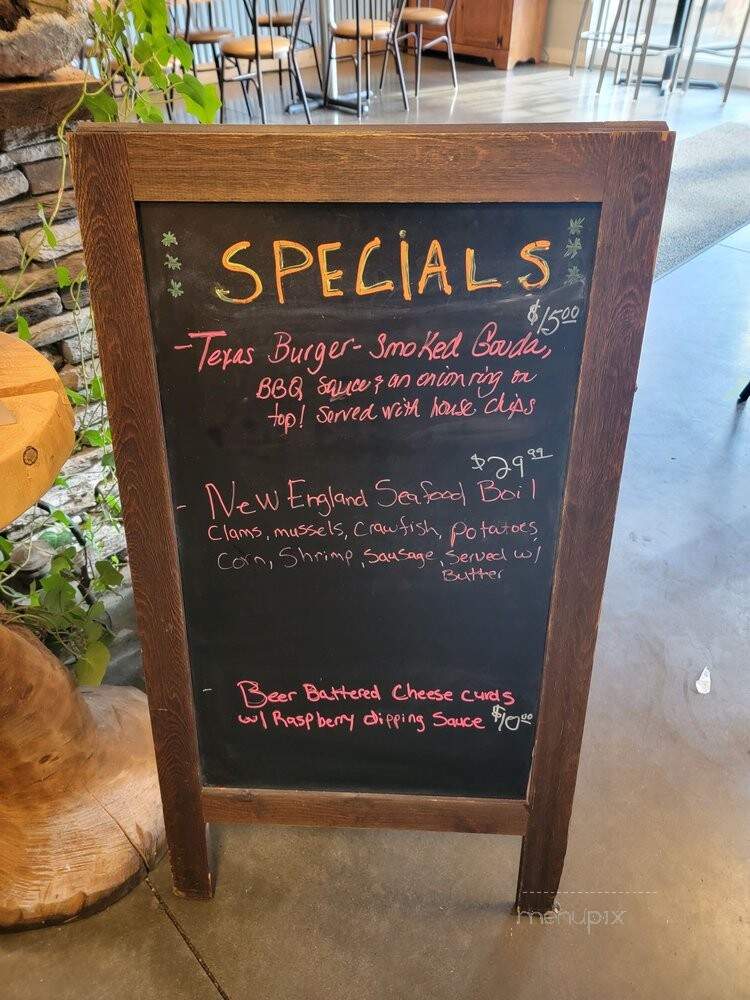 SPECIALS
$15.00
- Texas Burger - Smoked Gouda,
BBQ Sauce & an onion ring on
top! Served with house chips
$29.99
- New England Seafood Boil
Clams, mussels, Crawfish, potatoes,
Corn, Shrimp, Sausage, Served w/
Butter
- Beer Battered Cheese curds
w/ Raspberry dipping Sauce $10.00
menupix